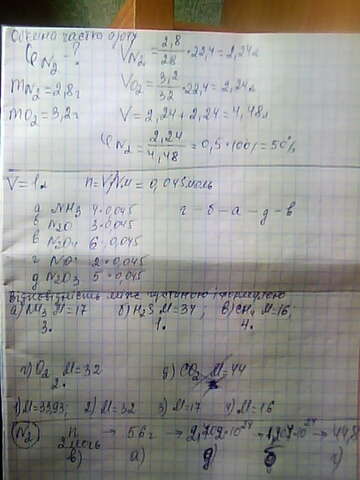 Об'ємна частка азоту
φN₂ - ?
mN₂ = 2,8г
mO₂ = 3,2г
VN₂ = 2,8/28 · 22,4 = 2,24л
VO₂ = 3,2/32 · 22,4 = 2,24л
V = 2,24 + 2,24 = 4,48л
φN₂ = 2,24/4,48 = 0,5 · 100% = 50%
V = 1л n = V/Vм = 0,045моль
а NH₃ 4·0,045
б N₂O 3·0,045
в 6·0,045
г NO 2·0,045
д N₂O₃ 5·0,045
г – б – а – д – в
Відповідність між густиною і формулою
а) NH₃ M=17 б) H₂S M=34; в) CH₄ M=16;
3. 1. 4.
г) O₂ M=32 д) CO₂ M=44
2.
1) M=33,93; 2) M=32 3) M=17 4) M=16
N₂ n 2моль → 56г → ·10²⁴ → ·10²⁴ → 44,8
в) а) д) б г)